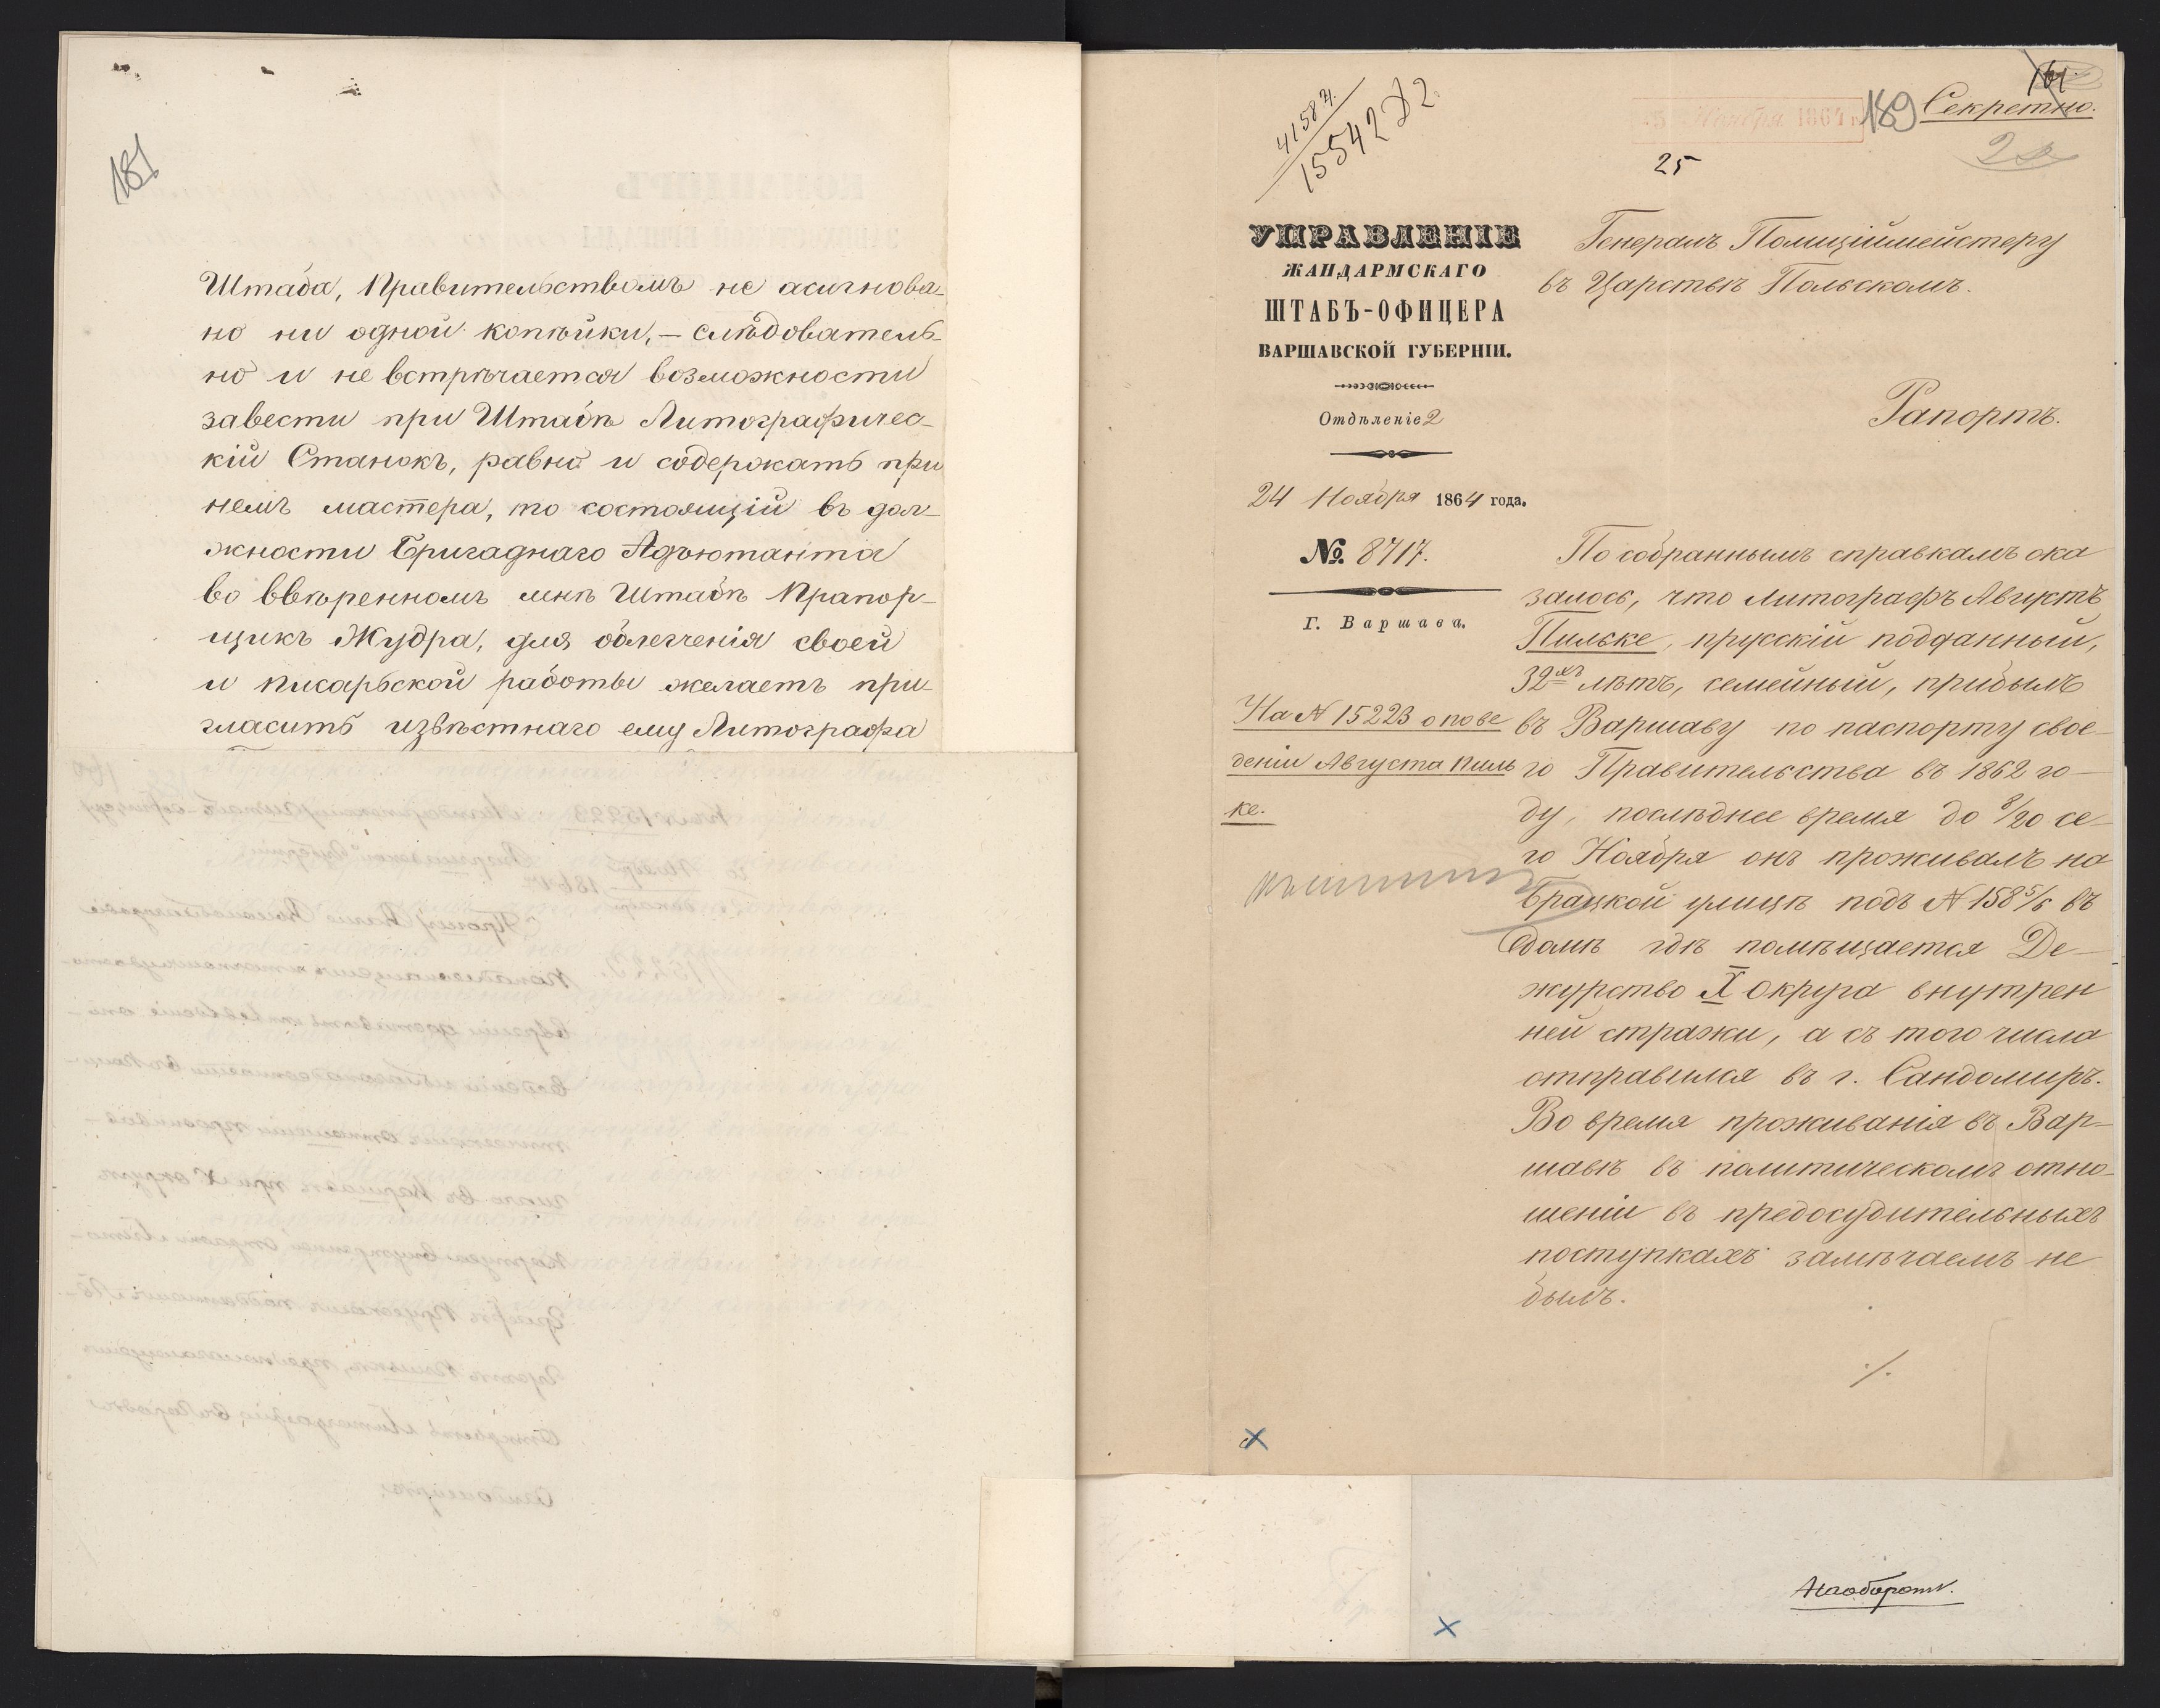 181
Штаба, Правительствомъ не асигнова-
но ни одной копѣйки, – слѣдователь-
но и не встрѣчается возможности
завести при Штабѣ Литографичес-
кій Станокъ, равно и содержать при
немъ мастера, то состоящій въ дол-
жности Бригаднаго Адъютанта
во ввѣренномъ мнѣ Штабѣ Прапор-
щикъ Жудра, для облегченія своей
и писарьской работы желаетъ при-
гласить извѣстнаго ему Литографа
161.
189 Секретно.
Ноября 1864
25
15542 Д2.
УПРАВЛЕНІЕ
ЖАНДАРМСКАГО
ШТАБЪ-ОФИЦЕРА
ВАРШАВСКОЙ ГУБЕРНІИ.
Отдѣленіе 2
24 Ноября 1864 года.
№. 8717.
Г. Варшава.
На № 15223 о пове
деніи Августа Пиль
ке.
Генералъ Полиціймейстеру
въ Царствѣ Польскомъ.
Рапортъ.
По собраннымъ справкамъ ока
залось, что литографъ Августъ
Пильке, прусскій подданный,
32хъ лѣтъ, семейный, прибылъ
въ Варшаву по паспорту свое-
го Правительства въ 1862 го-
ду, послѣднее время до 8/20 се-
го Ноября онъ проживалъ на
Брацкой улицѣ подъ № 1585/6 въ
домѣ гдѣ помѣщается Де-
журство X Округа внутрен
ней стражи, а съ того числа
отправился въ г. Сандомиръ.
Во время проживанія въ Вар-
шавѣ въ политическомъ отно-
шеніи въ предосудительныхъ
поступкахъ замѣчаемъ не
былъ.
./.
Наоборотѣ.